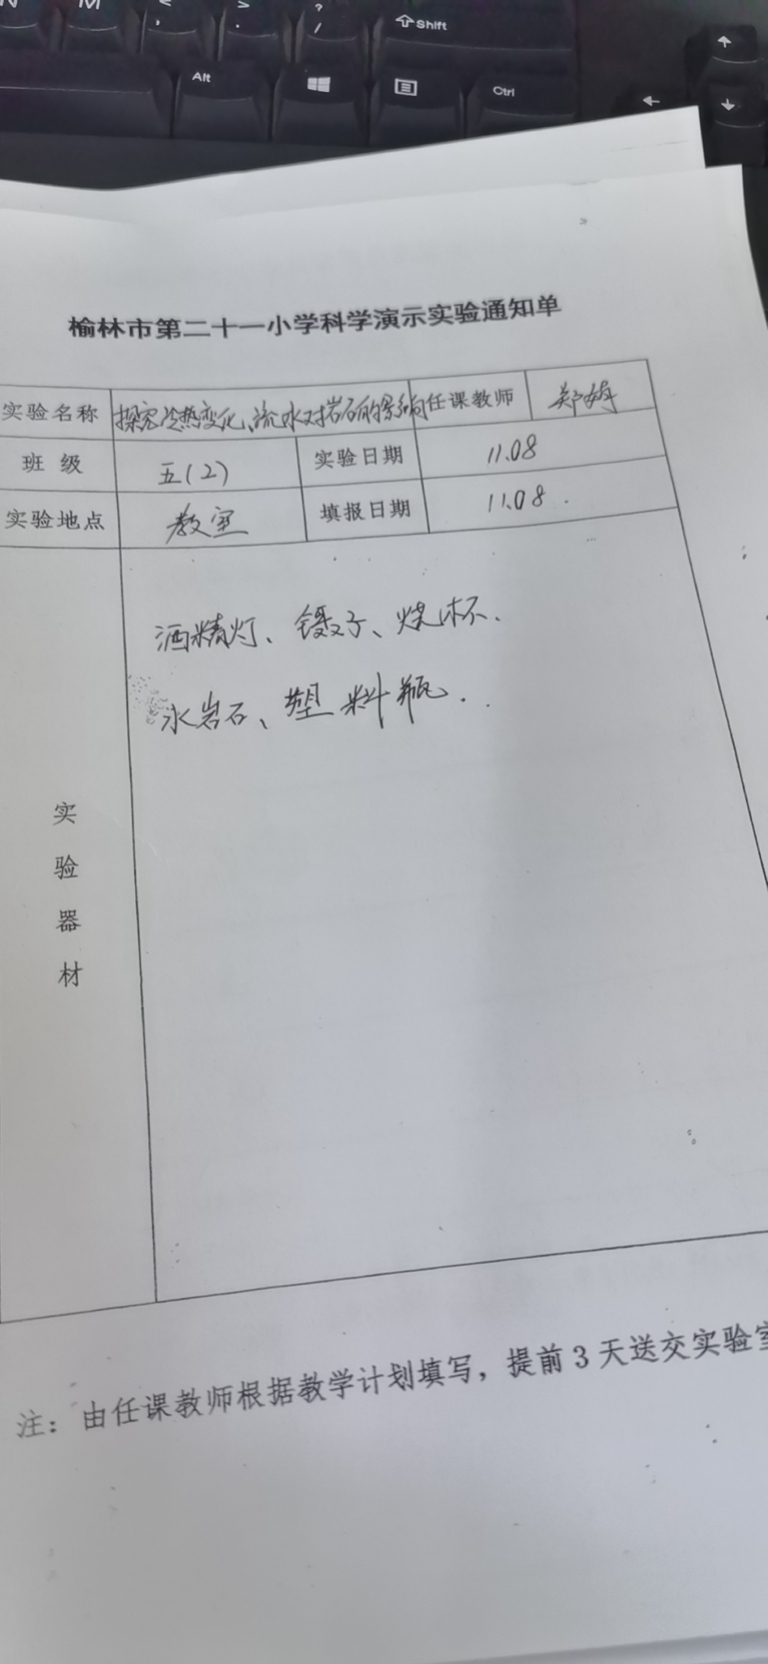 N M < , > . ? / Shift
Alt Ctrl
榆林市第二十一小学科学演示实验通知单
实验名称 探究冷热变化、流水对岩石的影响 任课教师 郑
班 级 五(2) 实验日期 11.08
实验地点 教室 填报日期 11.08.
酒精灯、镊子、烧杯、
水岩石、塑料瓶.
实
验
器
材
注：由任课教师根据教学计划填写，提前3天送交实验室